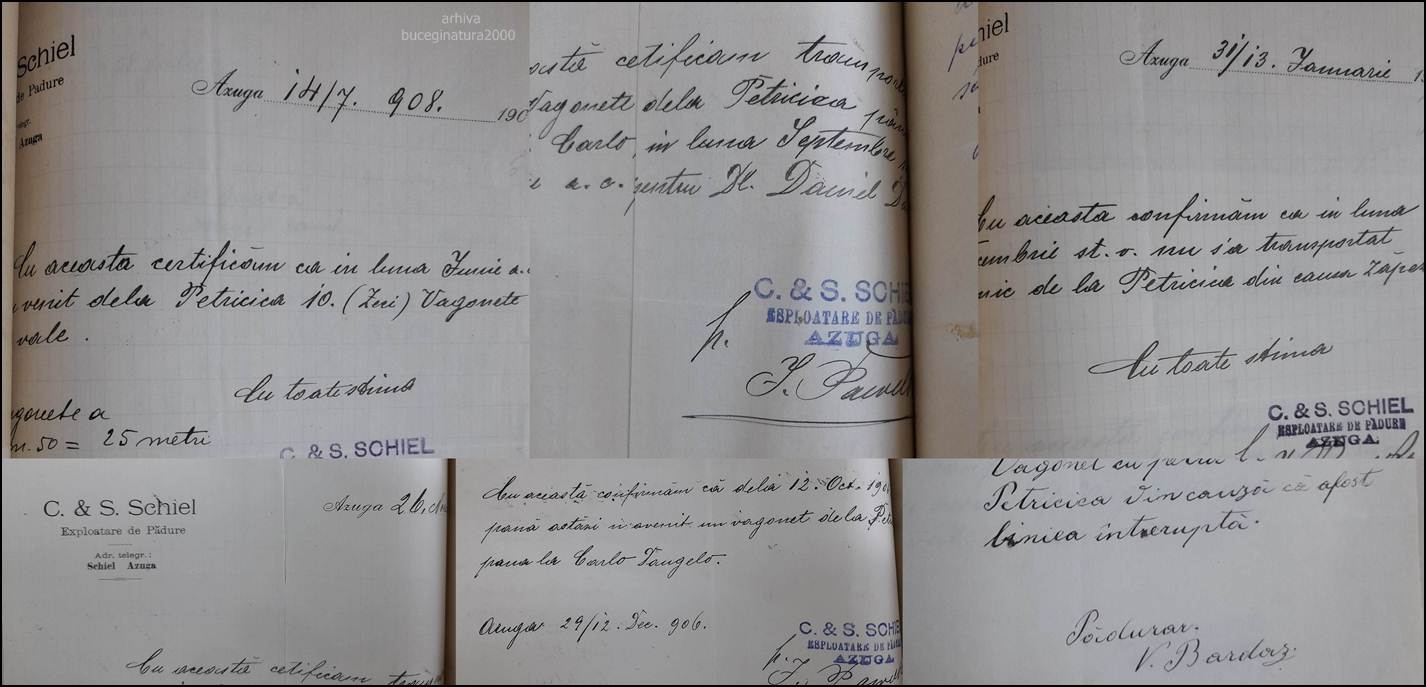 arhiva
buceginatura2000
Schiel
de Padure
Azuga
Azuga 14/7. 908. 190
Cu aceasta certificăm ca in luna Junie a.
venit dela Petricica 10. (Zeci) Vagonete
vale.
Cu toate stima
gonete a
50 = 25 metri
C. & S. SCHIEL
cetificam
Vagonete dela Petricica
Carlo, in luna Septembre
a. c. pentru Dl. Daniel D
C. & S. SCHIE
ESPLOATARE DE PĂDU
AZUGA
p.
hiel
dure
Azuga 31/13. Januarie 1
Cu aceasta confirmăm ca in luna
cembrie st. v. nu s'a transportat
nic de la Petricica din causa zăpe
Cu toate stima
C. & S. SCHIEL
ESPLOATARE DE PĂDURE
AZUGA
C. & S. Schiel
Exploatare de Pădure
Adr. telegr.:
Schiel Azuga
Azuga 26.
Cu această cetificam
Cu această confirmăm că dela 12. Oct. 190
pană astăsi n avenit un vagonet dela Pet
pana la Carlo Tangelo.
Azuga 29/12. Dec. 906.
C. & S. SCHIE
ESPLOATARE DE PĂDU
AZUGA
p.
Vagonet cu
Petricica din cauză că afost
liniea întreruptă.
Pădurar.
V. Bardaz